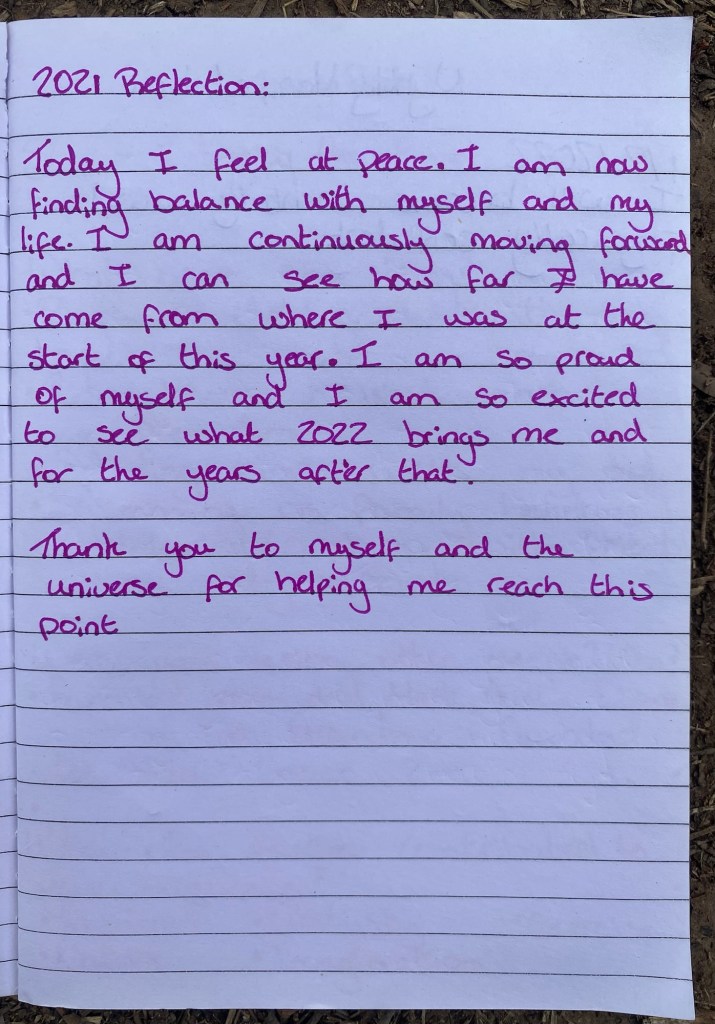 2021 Reflection:
Today I feel at peace. I am now
finding balance with myself and my
life. I am continuously moving forward
and I can see how far I have
come from where I was at the
start of this year. I am so proud
of myself and I am so excited
to see what 2022 brings me and
for the years after that.
Thank you to myself and the
universe for helping me reach this
point